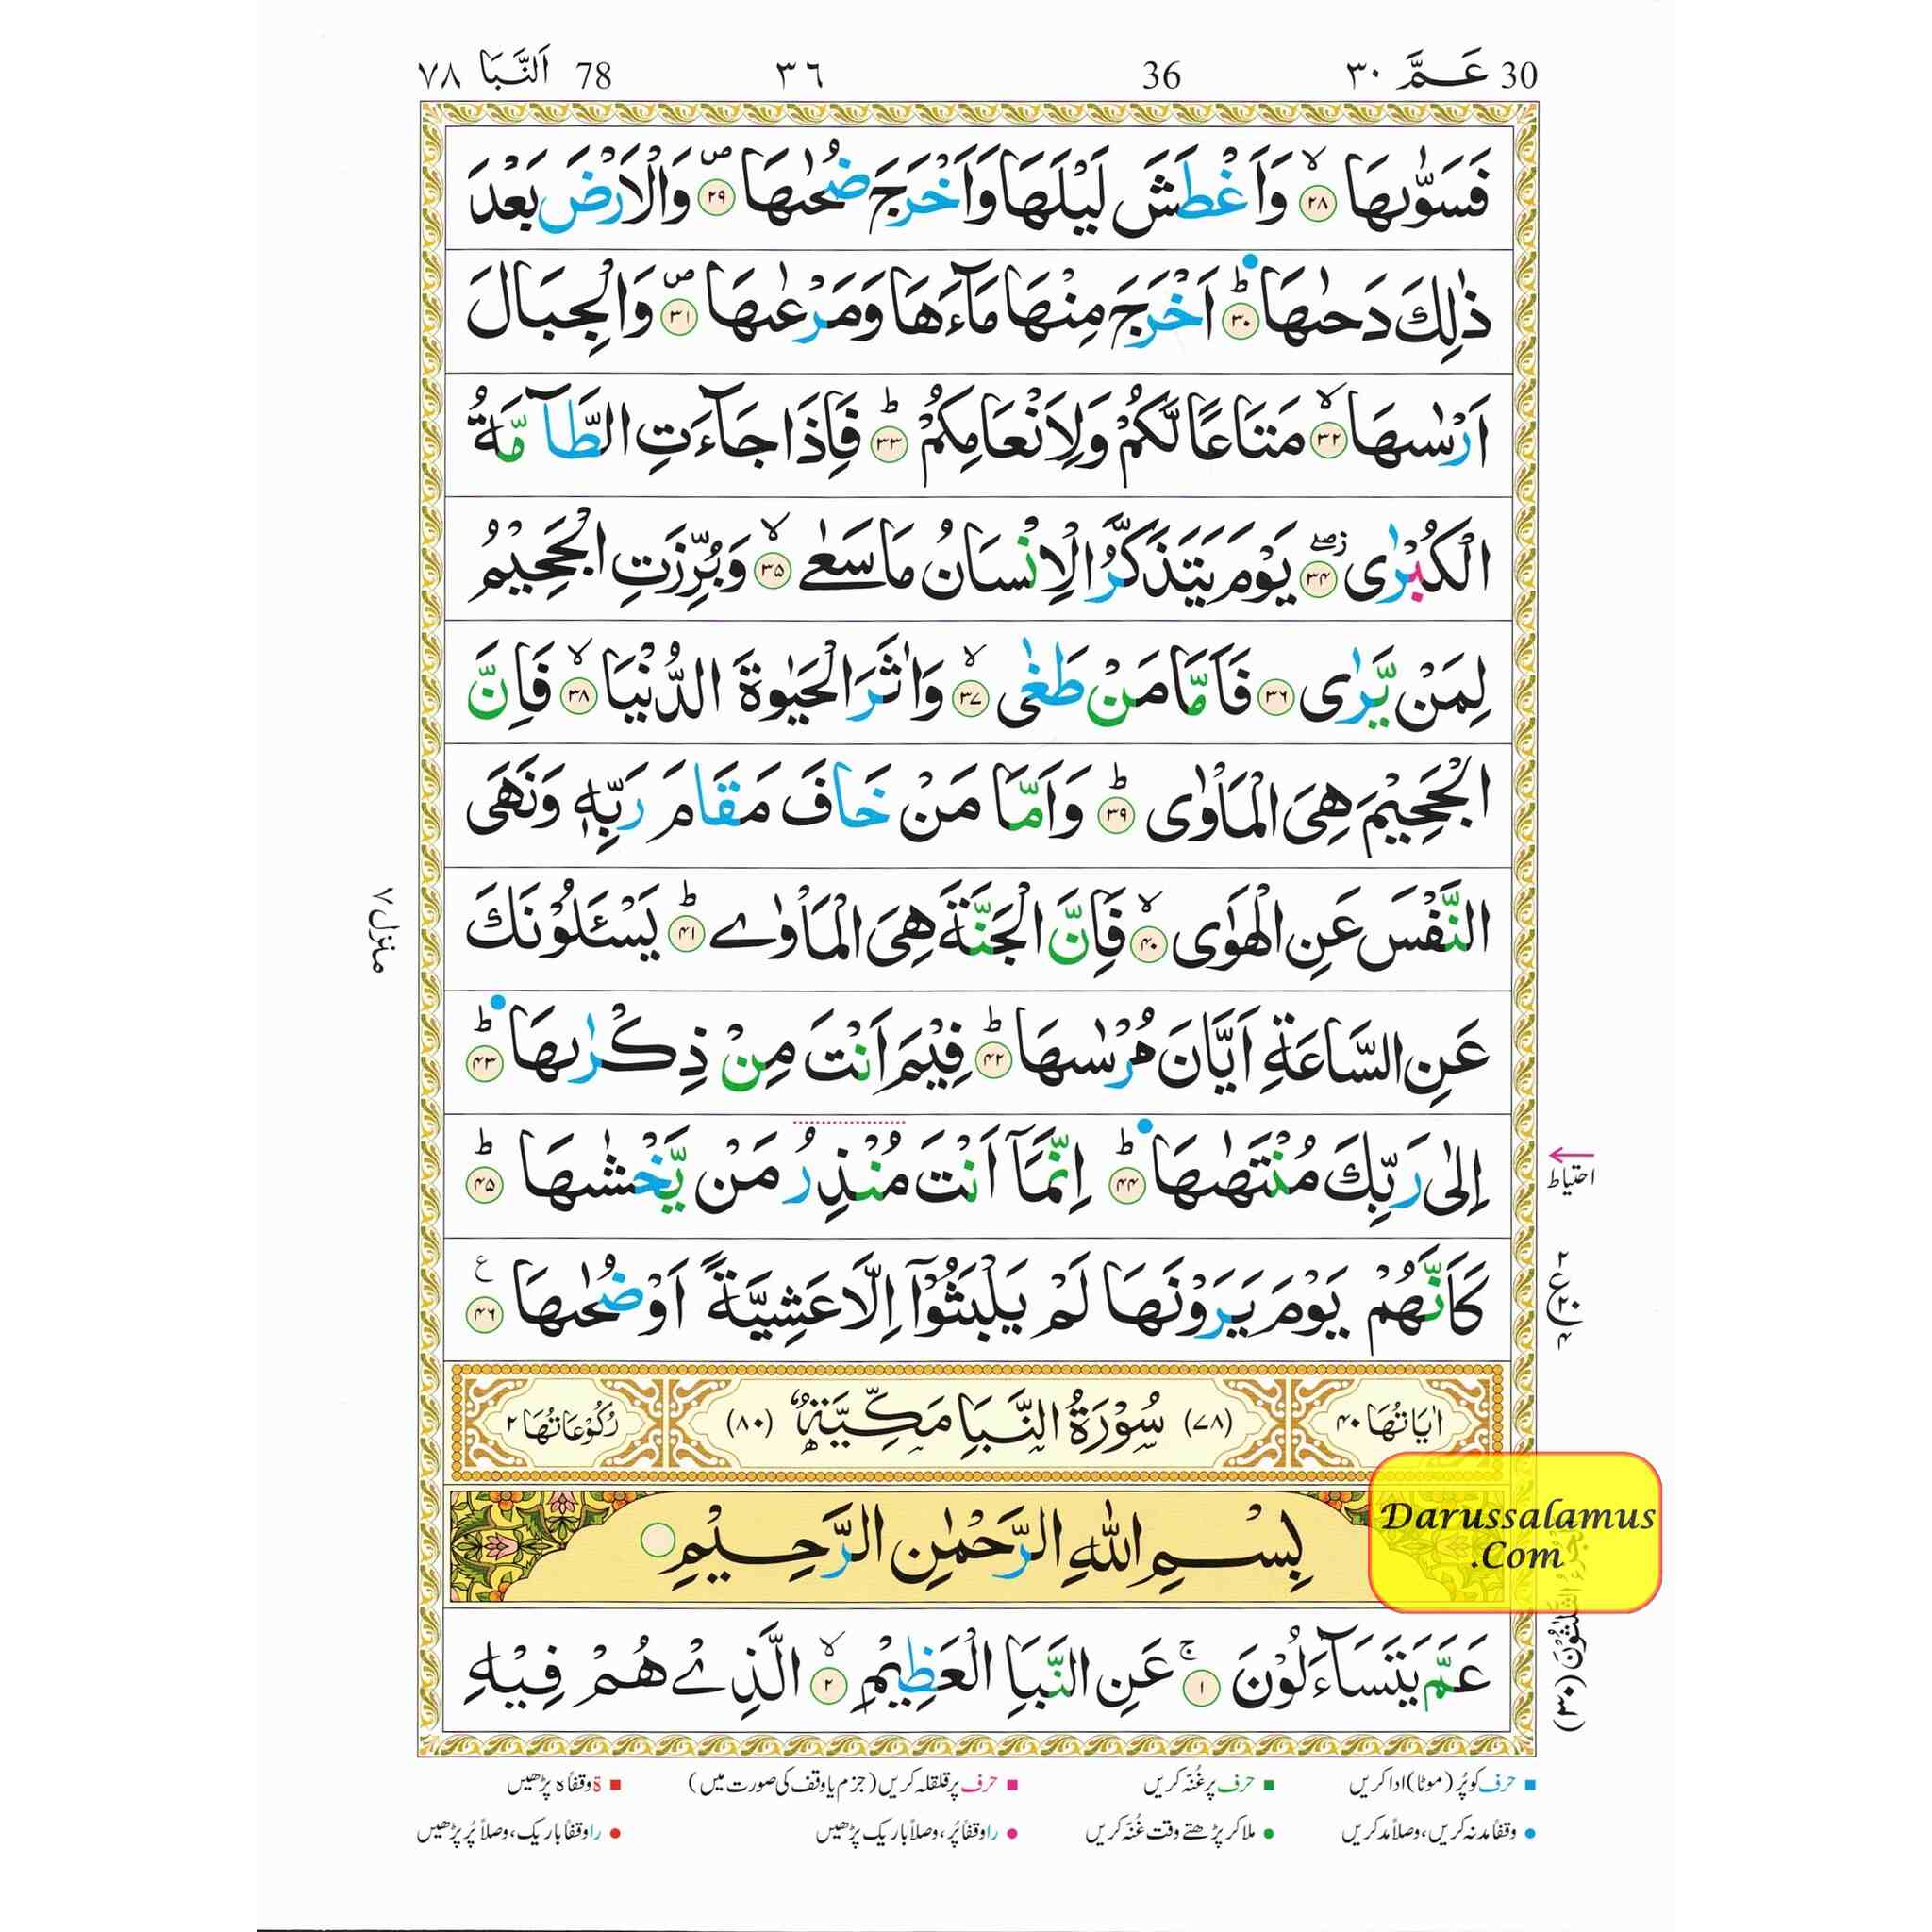 30 عَـمَّ ٣٠ 36 ٣٦ 78 اَلنَّبَا ٧٨
فَسَوّٰىهَا ۙ‏ ﴿۲۸﴾ وَاَغْطَشَ لَيْلَهَا وَاَخْرَجَ ضُحٰىهَا ۪ ‏ ﴿۲۹﴾ وَالْاَرْضَ بَعْدَ
ذٰلِكَ دَحٰىهَا ؕ‏ ﴿۳۰﴾ اَخْرَجَ مِنْهَا مَآءَهَا وَمَرْعٰىهَا ۪ ‏ ﴿۳۱﴾ وَالْجِبَالَ
اَرْسٰىهَا ۙ‏ ﴿۳۲﴾ مَتَاعًا لَّكُمْ وَلِاَنْعَامِكُمْ ؕ‏ ﴿۳۳﴾ فَاِذَا جَآءَتِ الطَّآمَّةُ
الْكُبْرٰى ۖ‏ ﴿۳۴﴾ يَوْمَ يَتَذَكَّرُ الْاِنْسَانُ مَا سَعٰى ۙ‏ ﴿۳۵﴾ وَبُرِّزَتِ الْجَحِيْمُ
لِمَنْ يَّرٰى ‏ ﴿۳۶﴾ فَاَمَّا مَنْ طَغٰى ۙ‏ ﴿۳۷﴾ وَاٰثَرَ الْحَيٰوةَ الدُّنْيَا ۙ‏ ﴿۳۸﴾ فَاِنَّ
الْجَحِيْمَ هِىَ الْمَاْوٰى ؕ‏ ﴿۳۹﴾ وَاَمَّا مَنْ خَافَ مَقَامَ رَبِّهٖ وَنَهَى
النَّفْسَ عَنِ الْهَوٰى ۙ‏ ﴿۴۰﴾ فَاِنَّ الْجَنَّةَ هِىَ الْمَاْوٰے ؕ‏ ﴿۴۱﴾ يَسْـَٔلُوْنَكَ
عَنِ السَّاعَةِ اَيَّانَ مُرْسٰىهَا ؕ‏ ﴿۴۲﴾ فِيْمَ اَنْتَ مِنْ ذِكْرٰىهَا ؕ‏ ﴿۴۳﴾
اِلٰى رَبِّكَ مُنْتَهٰىهَا ؕ‏ ﴿۴۴﴾ اِنَّمَآ اَنْتَ مُنْذِرُ مَنْ يَّخْشٰىهَا ؕ‏ ﴿۴۵﴾
كَاَنَّهُمْ يَوْمَ يَرَوْنَهَا لَمْ يَلْبَثُوْٓا اِلَّا عَشِيَّةً اَوْ ضُحٰىهَا ‏ ﴿۴۶﴾ ع
اٰيَاتُهَا ۴۰ (۷۸) سُوْرَةُ النَّبَاِ مَكِّيَّةٌ (۸۰) رُكُوْعَاتُهَا ۲
بِسْمِ اللّٰهِ الرَّحْمٰنِ الرَّحِيْمِ
عَمَّ يَتَسَآءَلُوْنَ ۚ‏ ﴿۱﴾ عَنِ النَّبَاِ الْعَظِيْمِ ۙ‏ ﴿۲﴾ الَّذِىْ هُمْ فِيْهِ
منزل ۷
احتیاط
۲ ع ۲۰ ۴
Darussalamus
.Com
الثَّلٰثُوْنَ (۳۰)
حرف کو پُر (موٹا) ادا کریں
حرف پر غُنّہ کریں
حرف پر قلقلہ کریں (جزم یا وقف کی صورت میں)
ة وقفاً ہ پڑھیں
وقفاً مد نہ کریں، وصلاً مد کریں
ملا کر پڑھتے وقت غُنّہ کریں
را وقفاً پُر، وصلاً باریک پڑھیں
را وقفاً باریک، وصلاً پُر پڑھیں